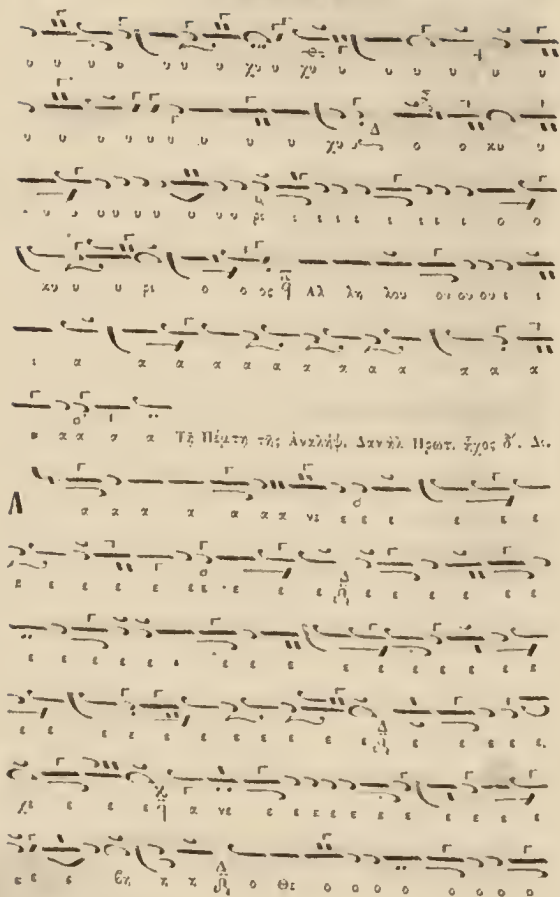 υ υ υ υ υ υ υ χυ υ χυ υ υ υ υ υ υ
υ υ υ υ υ υ υ υ υ χυ υ Δ ο ο κυ υ
υ υ υ υ υ υ υ υ υ υ ρι ι ι ι ι ι ι ι ι ο ο
κυ υ υ ρι ο ο ος Αλ λη λου ου ου ου ι ι
ι α α α α α α α α α α α α α
α α α α α Τῇ Πέμπτῃ τῆς Ἀναλήψ. Δανιὴλ Πρωτ. ἦχος δ΄. Δι.
Α α α α α α α α νε ε ε ε ε ε ε
ε ε ε ε ε ε ε ε ε ε Δ ε ε ε ε ε ε
ε ε ε ε ε ε ε ε ε ε ε ε ε ε ε
ε ε ε ε ε ε ε ε ε ε ε Δ ε ε ε ε ε ε
χε ε ε ε ε α νε ε ε ε ε ε ε ε ε ε ε ε
ε ε ε βη η η Δ ο Θε ο ο ο ο ο ο ο